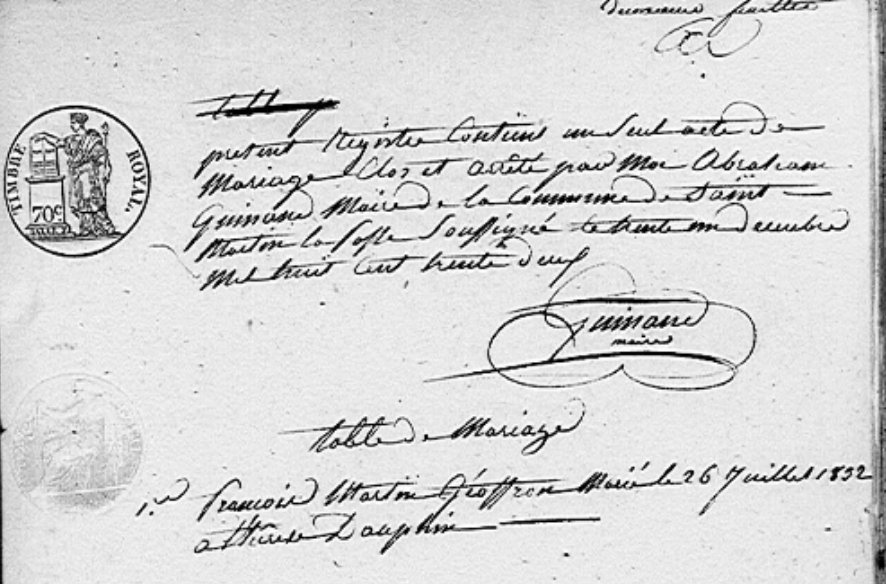 deuxieme feuillet
TIMBRE ROYAL
70c
table
present Registre Contient un Seul acte de
Mariage Clos et arrêté par Moi Abraham
Guinand Maire de la Commune de Saint
Martin la Soussigné le trente un decembre
Mil huit Cent trente deux
Guinand
maire
table de Mariage
1.er francois Martin Géoffron Marié le 26 Juillet 1832
a therese Dauphin